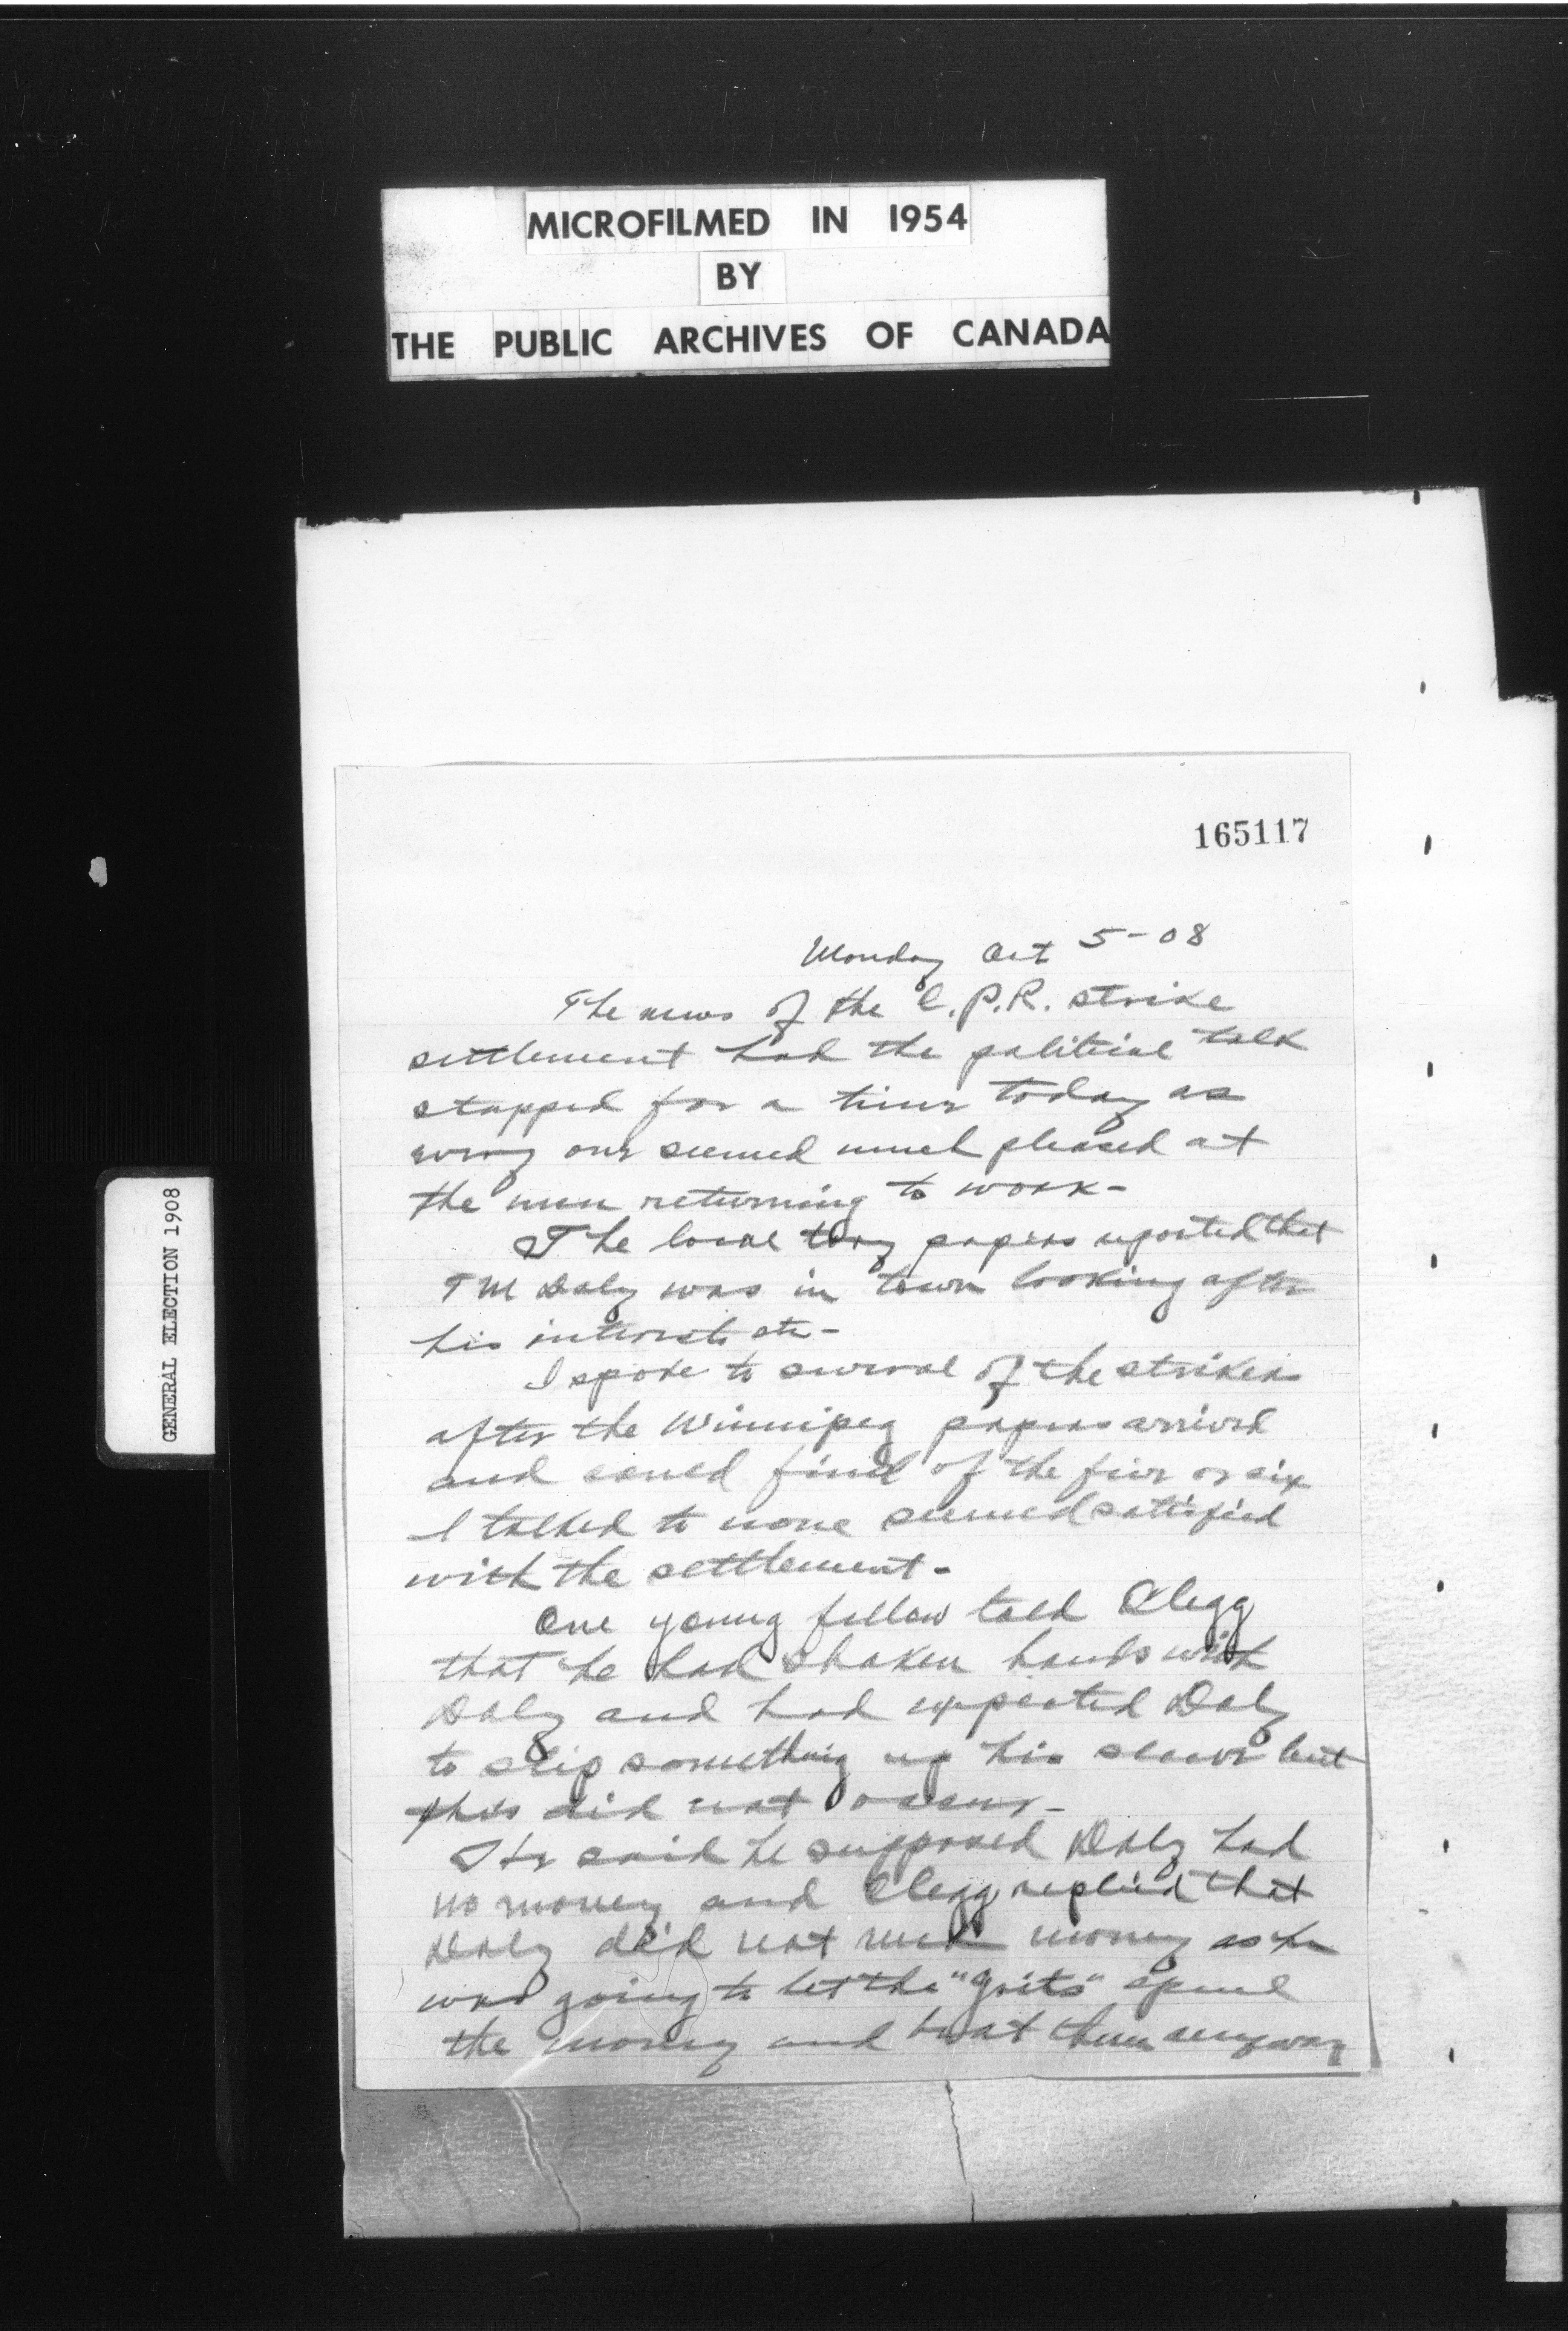 MICROFILMED IN 1954
BY
THE PUBLIC ARCHIVES OF CANADA
GENERAL ELECTION 1908
165117
Monday Oct 5-08
The news of the C.P.R. strike
settlement had the political talk
stopped for a time today as
every one seemed much pleased at
the men returning to work-
The local tory papers reported that
T M Daly was in town looking after
his interests etc-
I spoke to several of the strikers
after the Winnipeg papers arrived
and could find of the five or six
I talked to none seemed satisfied
with the settlement-
One young fellow told Clegg
that he had shaken hands with
Daly and had expected Daly
to slip something up his sleeve but
this did not occur-
He said he supposed Daly had
no money and Clegg replied that
Daly did not need money as he
was going to let the "Grits" spend
the money and beat them anyway